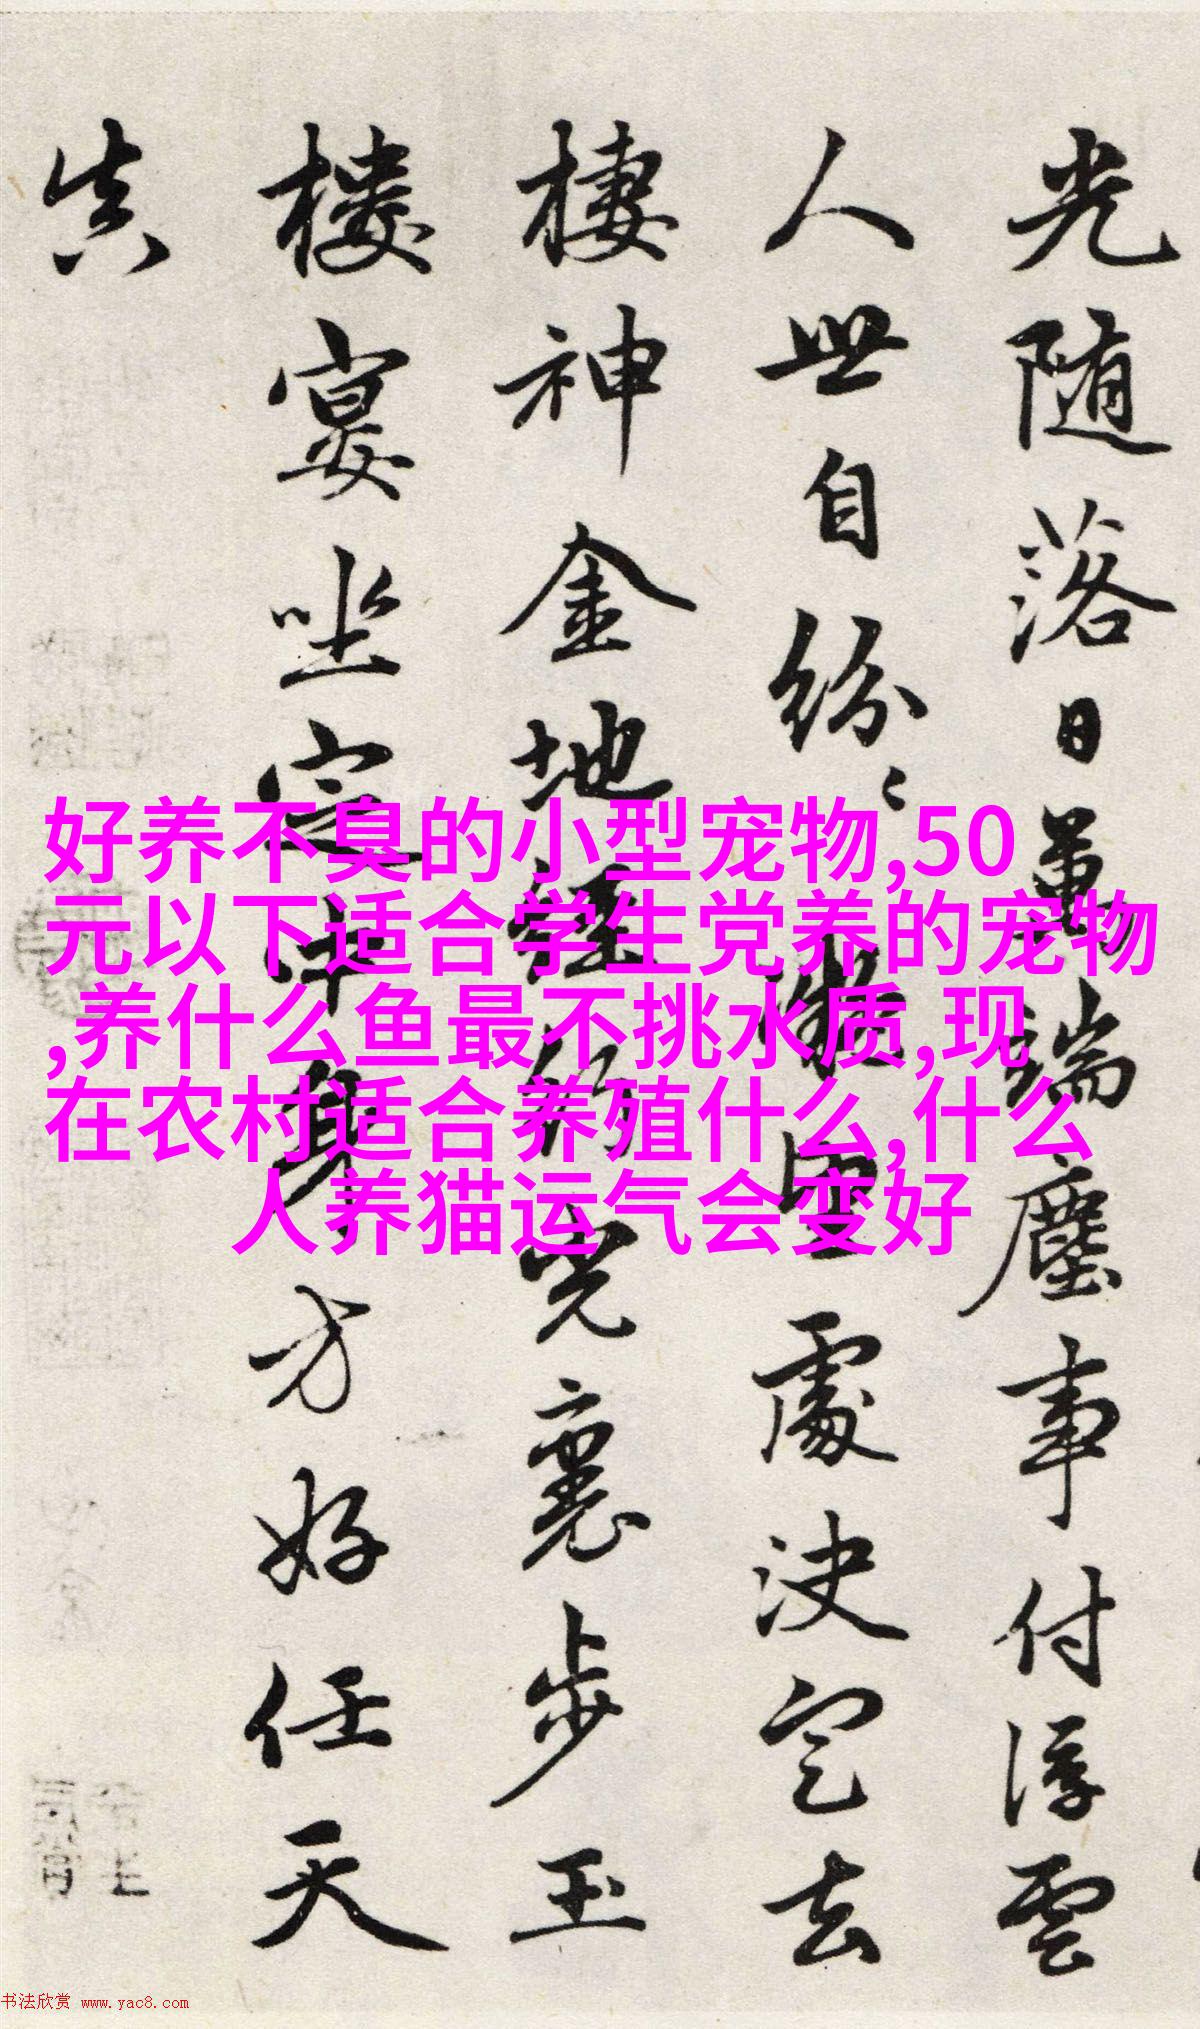 光随落日萬端塵事付浮雲
人世自紛〻處决定去
棲神金地經行光裏步玉
樓宴坐定中身方好任天
真
好养不臭的小型宠物,50
元以下适合学生党养的宠物
,养什么鱼最不挑水质,现
在农村适合养殖什么,什么
人养猫运气会变好
书法欣赏 www.yac8.com